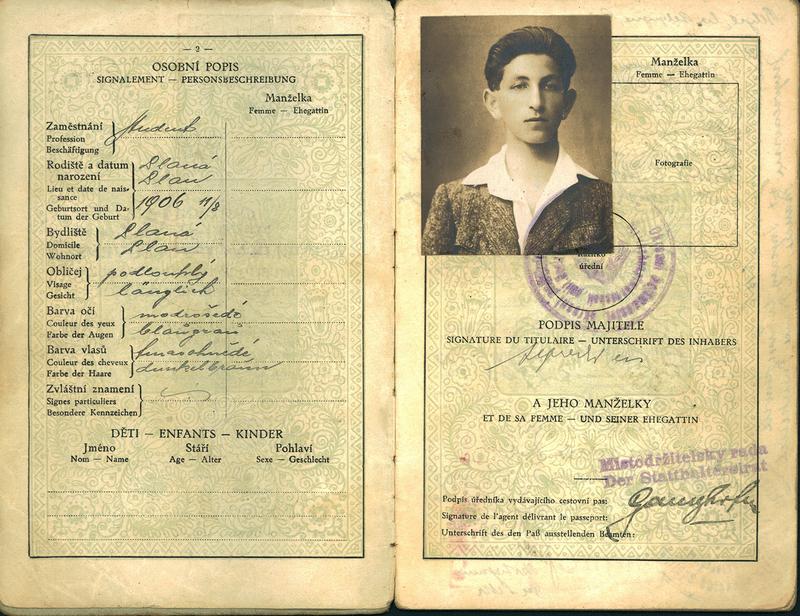 — 2 —
OSOBNÍ POPIS
SIGNALEMENT — PERSONSBESCHREIBUNG
Manželka
Femme — Ehegattin
Zaměstnání
Profession
Beschäftigung
student
Rodiště a datum
narození
Lieu et date de nais-
sance
Geburtsort und Da-
tum der Geburt
Slaná
Slan
1906 11/8
Bydliště
Domicile
Wohnort
Slaná
Slan
Obličej
Visage
Gesicht
podlouhlý
länglich
Barva očí
Couleur des yeux
Farbe der Augen
modrošedé
blaugrau
Barva vlasů
Couleur des cheveux
Farbe der Haare
tmavohnědé
dunkelbraun
Zvláštní znamení
Signes particuliers
Besondere Kennzeichen
DĚTI — ENFANTS — KINDER
Jméno Stáří Pohlaví
Nom — Name Age — Alter Sexe — Geschlecht
Manželka
Femme — Ehegattin
Fotografie
úřední
PODPIS MAJITELE
SIGNATURE DU TITULAIRE — UNTERSCHRIFT DES INHABERS
A JEHO MANŽELKY
ET DE SA FEMME — UND SEINER EHEGATTIN
Místodržitelský rada
Der Statthaltereirat
Podpis úředníka vydávajícího cestovní pas:
Signature de l'agent délivrant le passeport:
Unterschrift des den Paß ausstellenden Beamten: